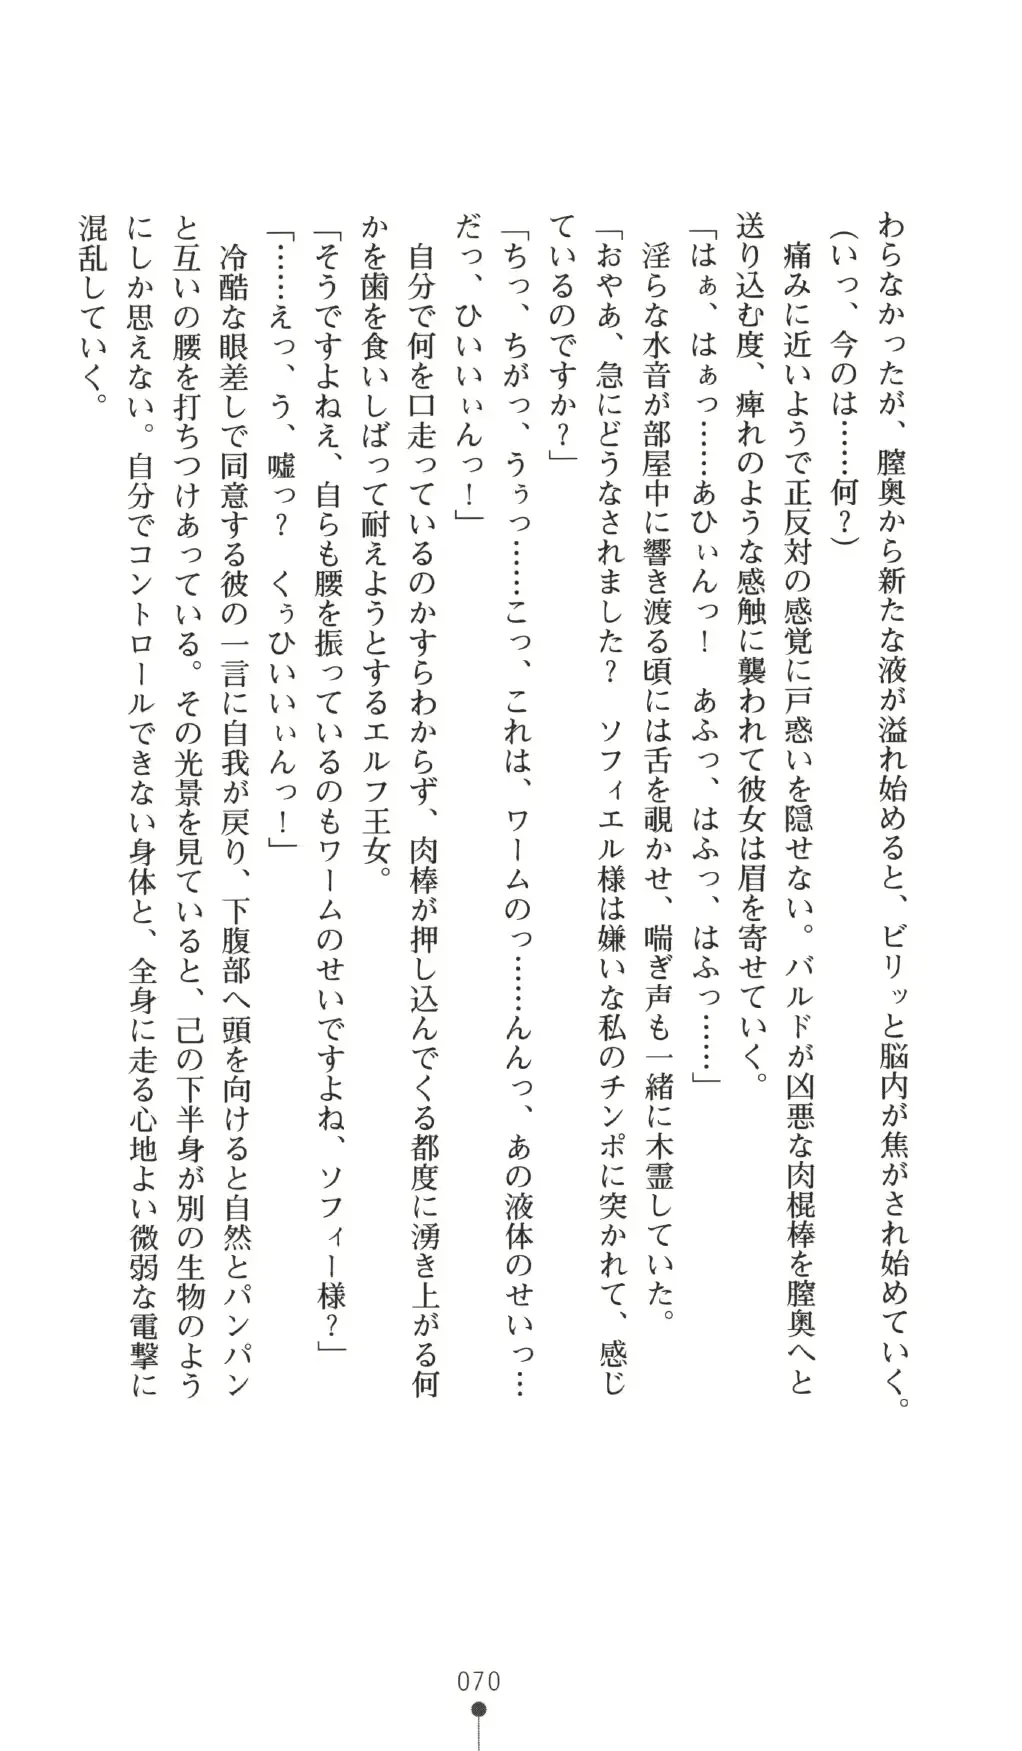 わらなかったが、膣奥から新たな液が溢れ始めると、ビリッと脳内が焦がされ始めていく。
（いっ、今のは……何？）
　痛みに近いようで正反対の感覚に戸惑いを隠せない。バルドが凶悪な肉棍棒を膣奥へと
送り込む度、痺れのような感触に襲われて彼女は眉を寄せていく。
「はぁ、はぁっ……あひぃんっ！　あふっ、はふっ、はふっ……」
　淫らな水音が部屋中に響き渡る頃には舌を覗かせ、喘ぎ声も一緒に木霊していた。
「おやあ、急にどうなされました？　ソフィエル様は嫌いな私のチンポに突かれて、感じ
ているのですか？」
「ちっ、ちがっ、うぅっ……こっ、これは、ワームのっ……んんっ、あの液体のせいっ…
だっ、ひいいぃんっ！」
　自分で何を口走っているのかすらわからず、肉棒が押し込んでくる都度に湧き上がる何
かを歯を食いしばって耐えようとするエルフ王女。
「そうですよねえ、自らも腰を振っているのもワームのせいですよね、ソフィー様？」
「……えっ、う、嘘っ？　くぅひいいぃんっ！」
　冷酷な眼差しで同意する彼の一言に自我が戻り、下腹部へ頭を向けると自然とパンパン
と互いの腰を打ちつけあっている。その光景を見ていると、己の下半身が別の生物のよう
にしか思えない。自分でコントロールできない身体と、全身に走る心地よい微弱な電撃に
混乱していく。
070